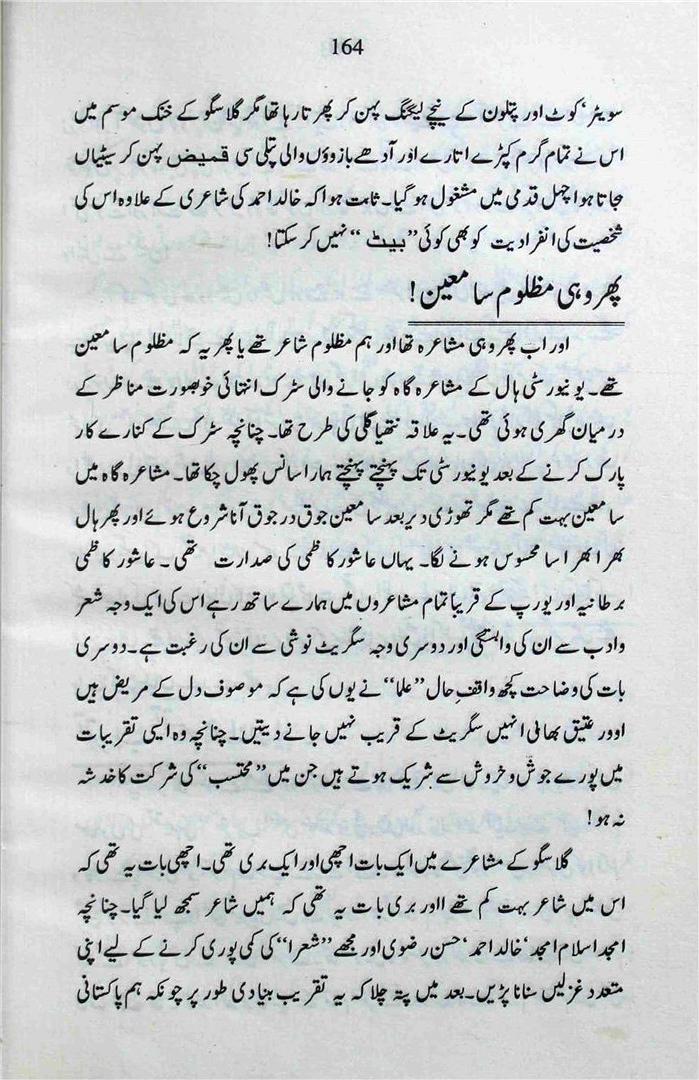 164
سویٹر‘ کوٹ اور پتلون کے نیچے لیگنگ پہن کر پھرتا رہا تھا مگر گلاسگو کے خنک موسم میں
اس نے تمام گرم کپڑے اتارے اور آدھے بازوؤں والی پتلی سی قمیض پہن کر سیٹیاں
بجاتا ہوا چہل قدمی میں مشغول ہو گیا۔ ثابت ہوا کہ خالد احمد کی شاعری کے علاوہ اس کی
شخصیت کی انفرادیت کو بھی کوئی ”بیٹ“ نہیں کر سکتا!
پھر وہی مظلوم سامعین!
اور اب پھر وہی مشاعرہ تھا اور ہم مظلوم شاعر تھے یا پھر یہ کہ مظلوم سامعین
تھے۔ یونیورسٹی ہال کے مشاعرہ گاہ کو جانے والی سڑک انتہائی خوبصورت مناظر کے
درمیان گھری ہوئی تھی۔ یہ علاقہ نتھیا گلی کی طرح تھا۔ چنانچہ سڑک کے کنارے کار
پارک کرنے کے بعد یونیورسٹی تک پہنچتے پہنچتے ہمارا سانس پھول چکا تھا۔ مشاعرہ گاہ میں
سامعین بہت کم تھے مگر تھوڑی دیر بعد سامعین جوق در جوق آنا شروع ہوئے اور پھر ہال
بھرا بھرا سا محسوس ہونے لگا۔ یہاں عاشور کاظمی کی صدارت تھی۔ عاشور کاظمی
برطانیہ اور یورپ کے قریباً تمام مشاعروں میں ہمارے ساتھ رہے اس کی ایک وجہ شعر
و ادب سے ان کی وابستگی اور دوسری وجہ سگریٹ نوشی سے ان کی رغبت ہے۔ دوسری
بات کی وضاحت کچھ واقفِ حال ”علما“ نے یوں کی ہے کہ موصوف دل کے مریض ہیں
اوور عتیق بھابی انہیں سگریٹ کے قریب نہیں جانے دیتیں۔ چنانچہ وہ ایسی تقریبات
میں پورے جوش و خروش سے شریک ہوتے ہیں جن میں ”محتسب“ کی شرکت کا خدشہ
نہ ہو!
گلاسگو کے مشاعرے میں ایک بات اچھی اور ایک بری تھی۔ اچھی بات یہ تھی کہ
اس میں شاعر بہت کم تھے ااور بری بات یہ تھی کہ ہمیں شاعر سمجھ لیا گیا۔ چنانچہ
امجد اسلام امجد‘ خالد احمد‘ حسن رضوی اور مجھے ”شعرا“ کی کمی پوری کرنے کے لیے اپنی
متعدد غزلیں سنانا پڑیں۔ بعد میں پتہ چلا کہ یہ تقریب بنیادی طور پر چونکہ ہم پاکستانی